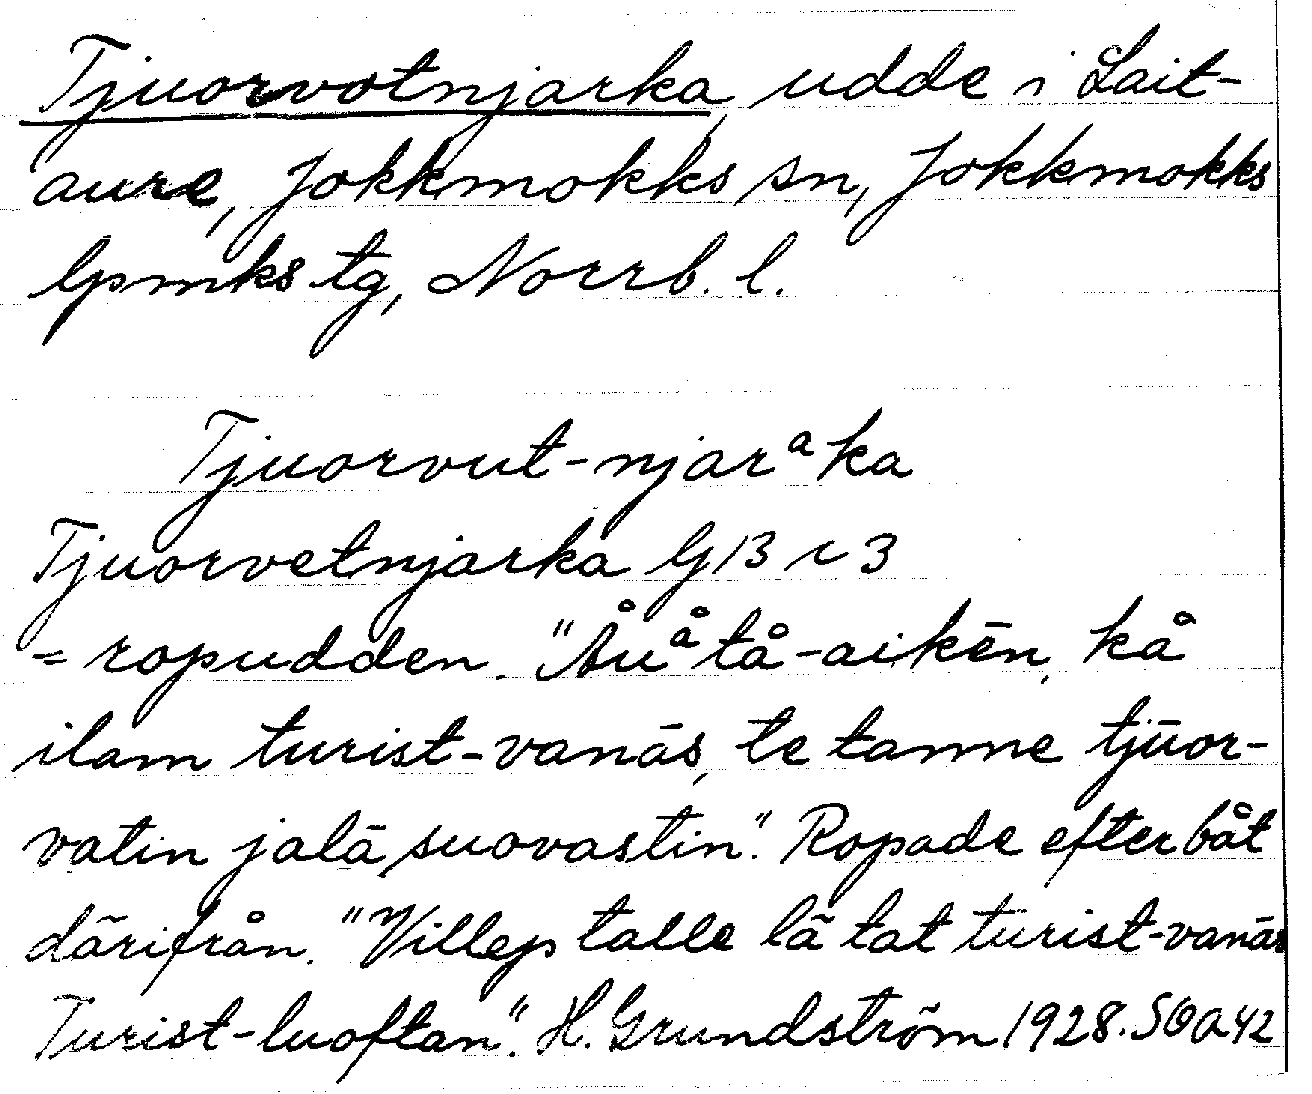 Tjuorvotnjarka, udde i Lait-
aure, Jokkmokks sn, Jokkmokks
lpmks tg, Norrb. l.
Tjuorvut-njarᵃka
Tjuorvetnjarka G13 r 3
= ropudden. "Åuåtå-aikēn, kå
ilam turist-vanās, te tanne tjūor-
vatin jalā suovastin". Ropade efter båt
därifrån. "Villep talle lā tat turist-vanās
Turist-luoftan". H. Grundström 1928. SOA42